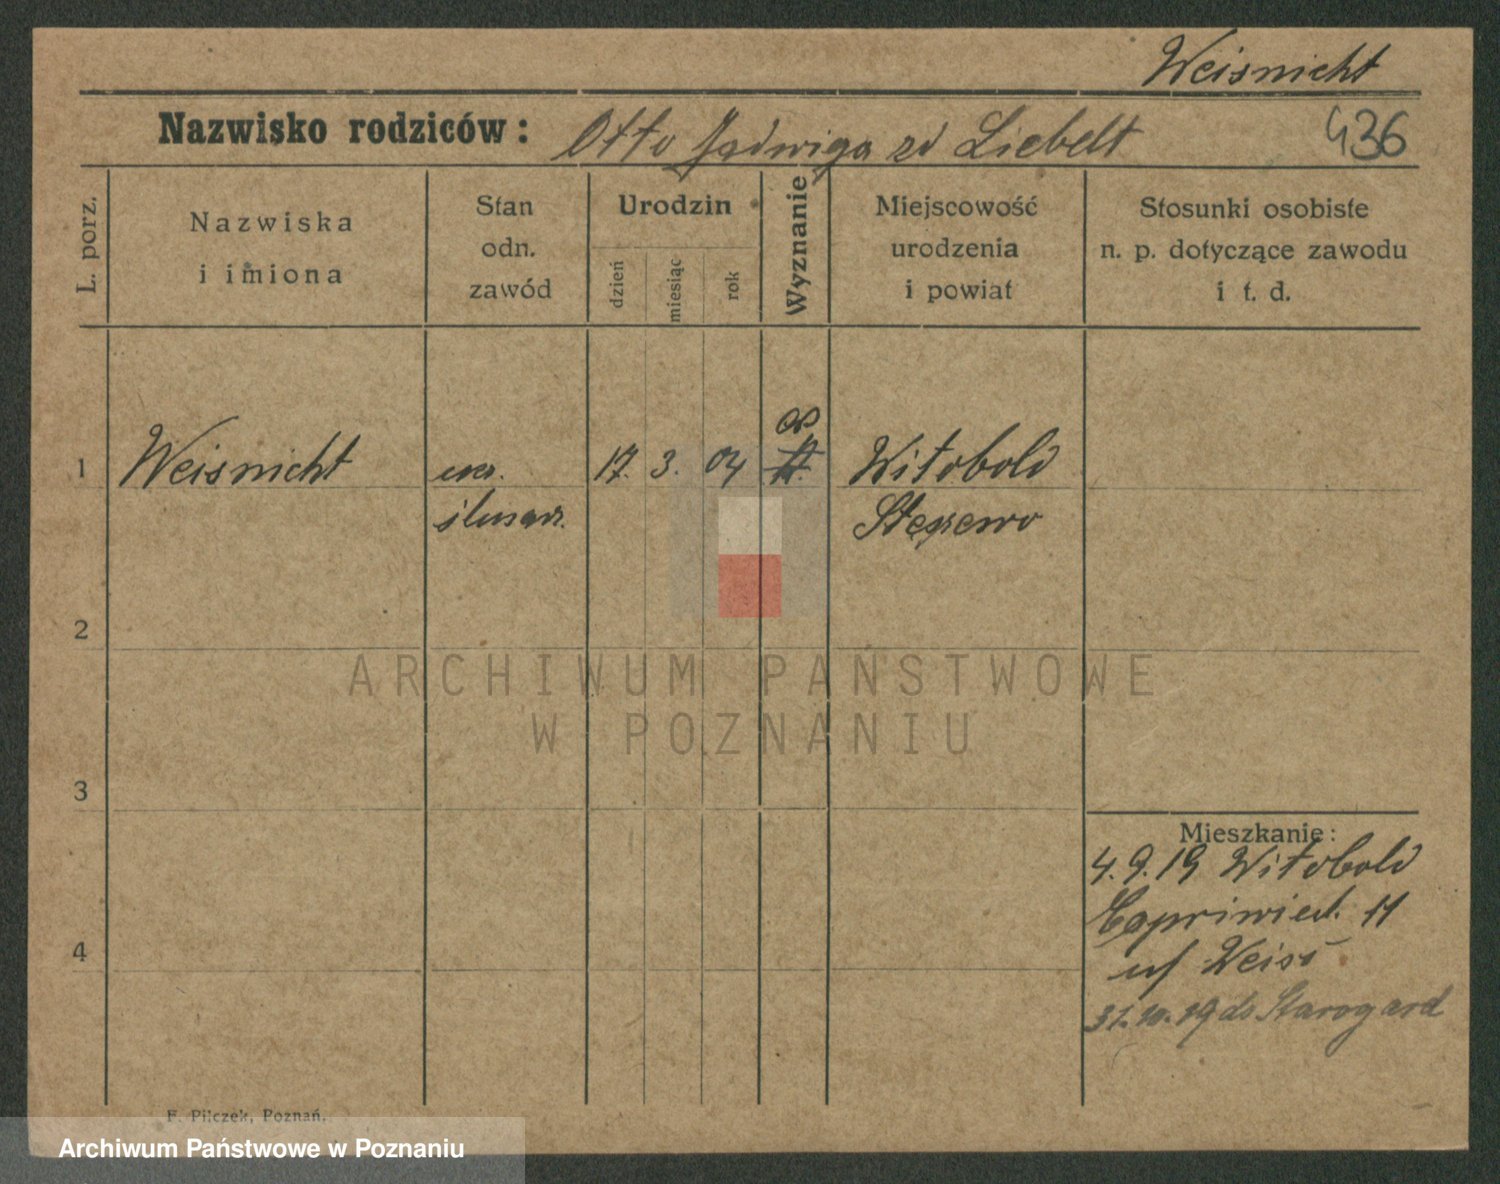 Weisnicht
Nazwisko rodziców: Otto Jadwiga zd Liebelt 436
L. porz.
Nazwiska
i imiona
Stan
odn.
zawód
Urodzin
dzień
miesiąc
rok
Wyznanie
Miejscowość
urodzenia
i powiat
Stosunki osobiste
n. p. dotyczące zawodu
i t. d.
1 Weisnicht ucz. 17. 3. 04 Witobold
ślusar. Stęszewo
2
3
4
Mieszkanie:
4.9.19 Witobold
11
u/ Weiss
31.10.19 do Starogard
F. Pilczek, Poznań.
ARCHIWUM PAŃSTWOWE
W POZNANIU
Archiwum Państwowe w Poznaniu